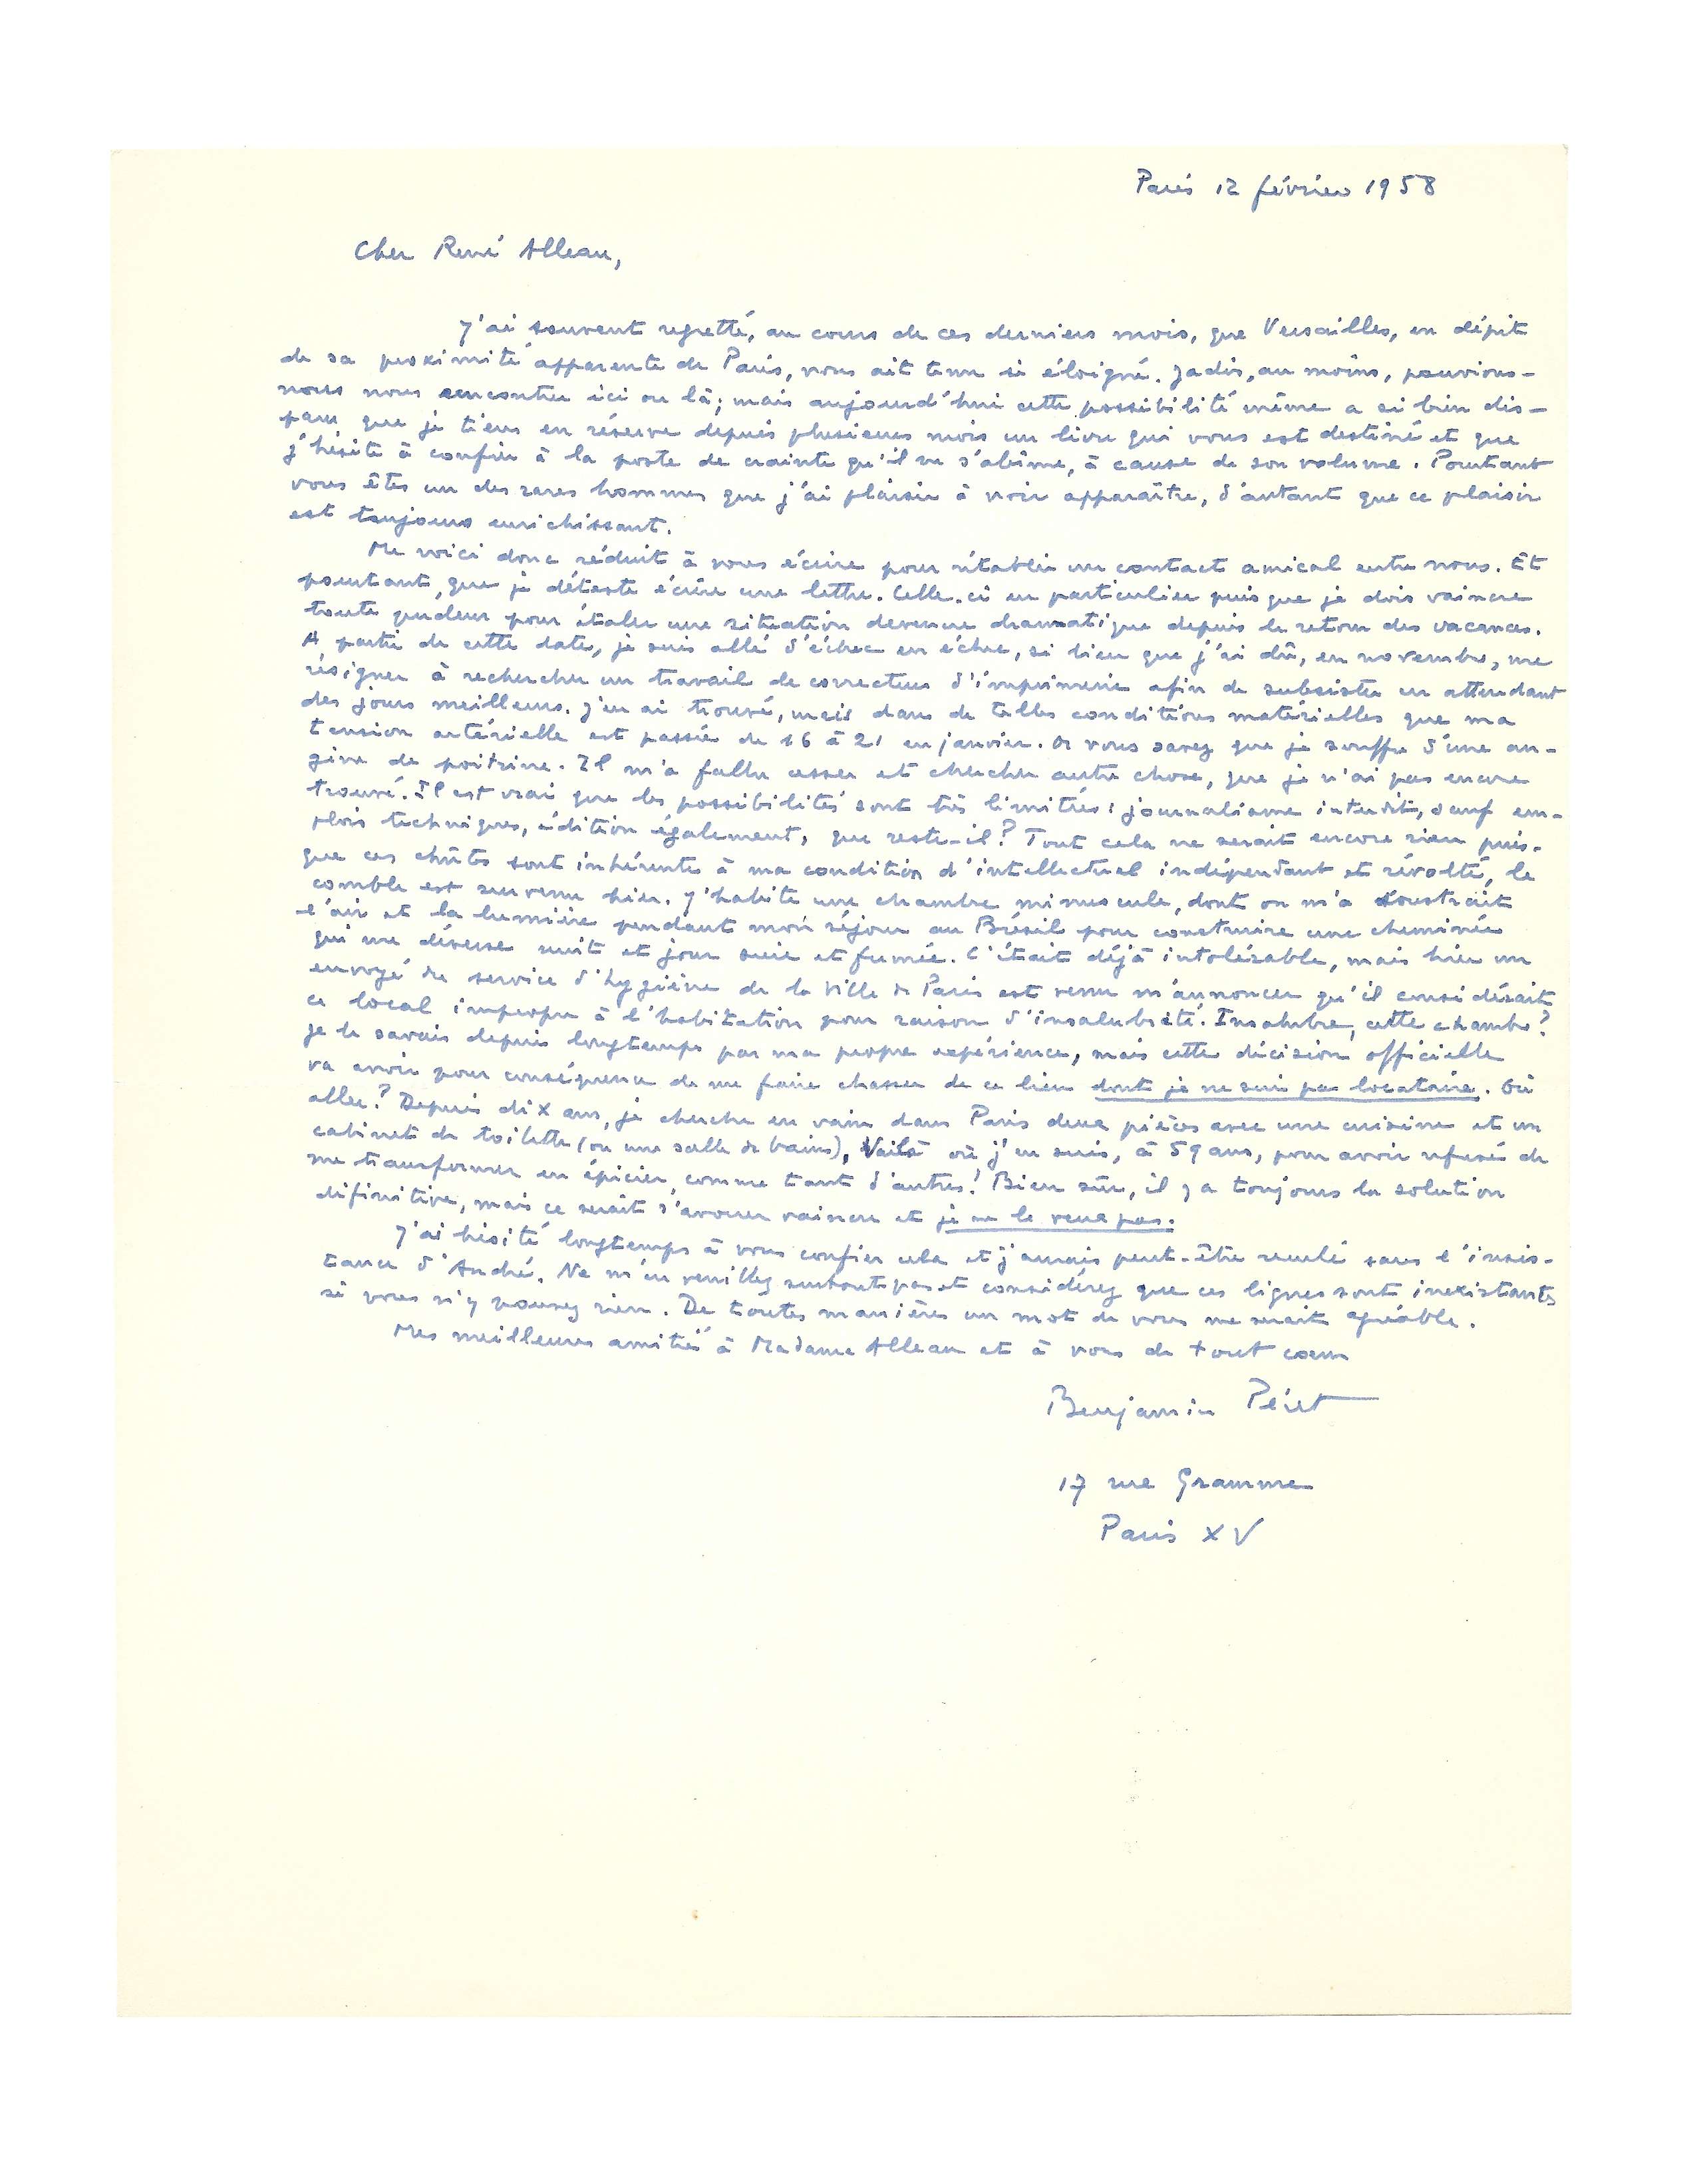 Paris 12 février 1958
Cher René Alleau,
J'ai souvent regretté, au cours de ces derniers mois, que Versailles, en dépit
de sa proximité apparente de Paris, vous ait tenu si éloigné. Jadis, au moins, pouvions-
nous nous rencontrer ici ou là; mais aujourd'hui cette possibilité même a si bien dis-
paru que je tiens en réserve depuis plusieurs mois un livre qui vous est destiné et que
j'hésite à confier à la poste de crainte qu'il ne s'abîme, à cause de son volume. Pourtant
vous êtes un des rares hommes que j'ai plaisir à voir apparaître, d'autant que ce plaisir
est toujours enrichissant.
Me voici donc réduit à vous écrire pour rétablir un contact amical entre nous. Et
pourtant, que je déteste écrire une lettre. Celle-ci en particulier puisque je dois vaincre
toute pudeur pour étaler une situation devenue dramatique depuis le retour des vacances.
A partir de cette date, je suis allé d'échec en échec, si bien que j'ai dû, en novembre, me
résigner à rechercher un travail de correcteur d'imprimerie afin de subsister en attendant
des jours meilleurs. J'en ai trouvé, mais dans de telles conditions matérielles que ma
tension artérielle est passée de 16 à 21 en janvier. Or vous savez que je souffre d'une an-
gine de poitrine. Il m'a fallu cesser et chercher autre chose, que je n'ai pas encore
trouvé. Il est vrai que les possibilités sont très limitées: journalisme interdit, sauf em-
plois techniques, édition également, que reste-il? Tout cela ne serait encore rien puis-
que ces chutes sont inhérentes à ma condition d'intellectuel indépendant et révolté, le
comble est survenu hier. J'habite une chambre minuscule, dont on m'a soustrait
l'air et la lumière pendant mon séjour au Brésil pour construire une cheminée
qui me déverse nuit et jour suie et fumée. C'était déjà intolérable, mais hier un
envoyé du service d'hygiène de la Ville de Paris est venu m'annoncer qu'il considérait
ce local impropre à l'habitation pour raison d'insalubrité. Insalubre, cette chambre?
je le savais depuis longtemps par ma propre expérience, mais cette décision officielle
va avoir pour conséquence de me faire chasser de ce lieu dont je ne suis pas locataire. Où
aller? Depuis dix ans, je cherche en vain dans Paris deux pièces avec une cuisine et un
cabinet de toilette (ou une salle de bains), Voilà où j'en suis, à 59 ans, pour avoir refusé de
me transformer en épicier, comme tant d'autres! Bien sûr, il y a toujours la solution
définitive, mais ce serait s'avouer vaincu et je ne le veux pas.
J'ai hésité longtemps à vous confier cela et j'aurais peut-être reculé sans l'insis-
tance d'André. Ne m'en veuillez surtout pas et considérez que ces lignes sont inexistantes
si vous n'y pouvez rien. De toutes manières un mot de vous me serait agréable.
Mes meilleures amitiés à Madame Alleau et à vous de tout cœur
Benjamin Péret
17 rue Gramme
Paris XV